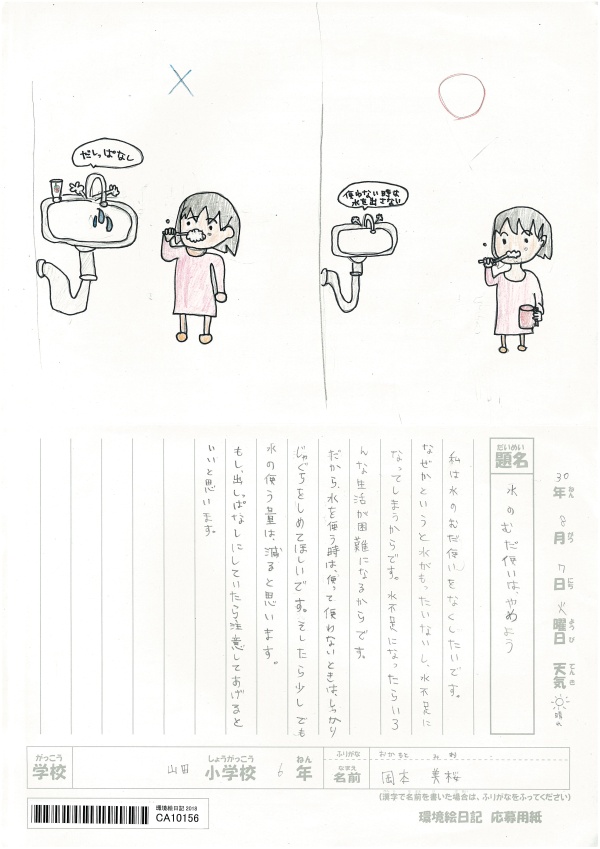 だしっぱなし
使わない時は
水を出さない
30年 8月 7日 火曜日 天気 晴れ
ねん がつ にち ようび てんき
だいめい
題名
水のむだ使いは、やめよう
私は水のむだ使いをなくしたいです。
なぜかというと水がもったいないし、水不足に
なってしまうからです。水不足になったらいろ
んな生活が困難になるからです。
だから、水を使う時は、使って使わないときは、しっかり
じゃぐちをしめてほしいです。そしたら少しでも
水の使う量は、減ると思います。
もし、出しっぱなしにしていたら注意してあげると
いいと思います。
がっこう しょうがっこう ねん
学校 山田 小学校 6年
ふりがな おかもと みお
なまえ
名前 岡本 美桜
(漢字で名前を書いた場合は、ふりがなをふってください)
環境絵日記 応募用紙
環境絵日記 2018
CA10156